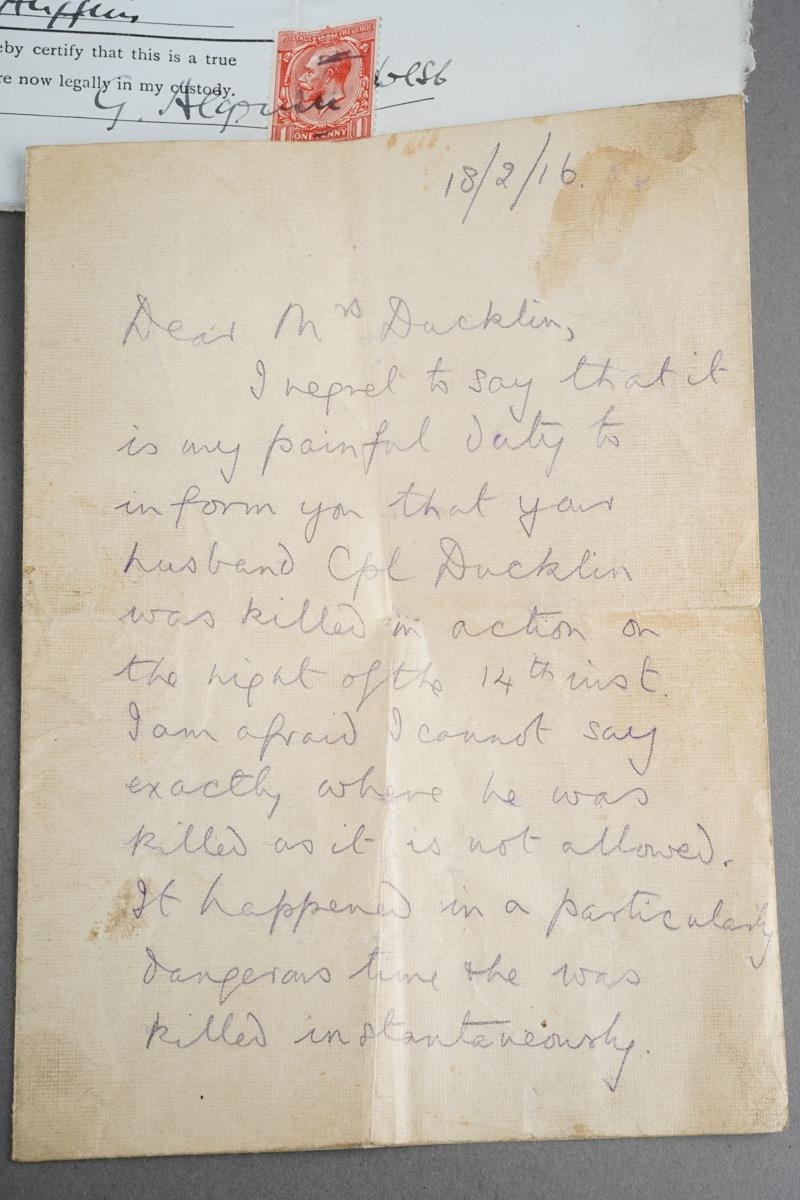 eby certify that this is a true
re now legally in my custody.
G.
POSTAGE REVENUE
1 ONE PENNY 1
18/2/16.
Dear Mrs Ducklin,
I regret to say that it
is my painful duty to
inform you that your
husband Cpl Ducklin
was killed in action on
the night of the 14th inst.
I am afraid I cannot say
exactly where he was
killed as it is not allowed.
It happened in a particularly
dangerous time & he was
killed instantaneously.